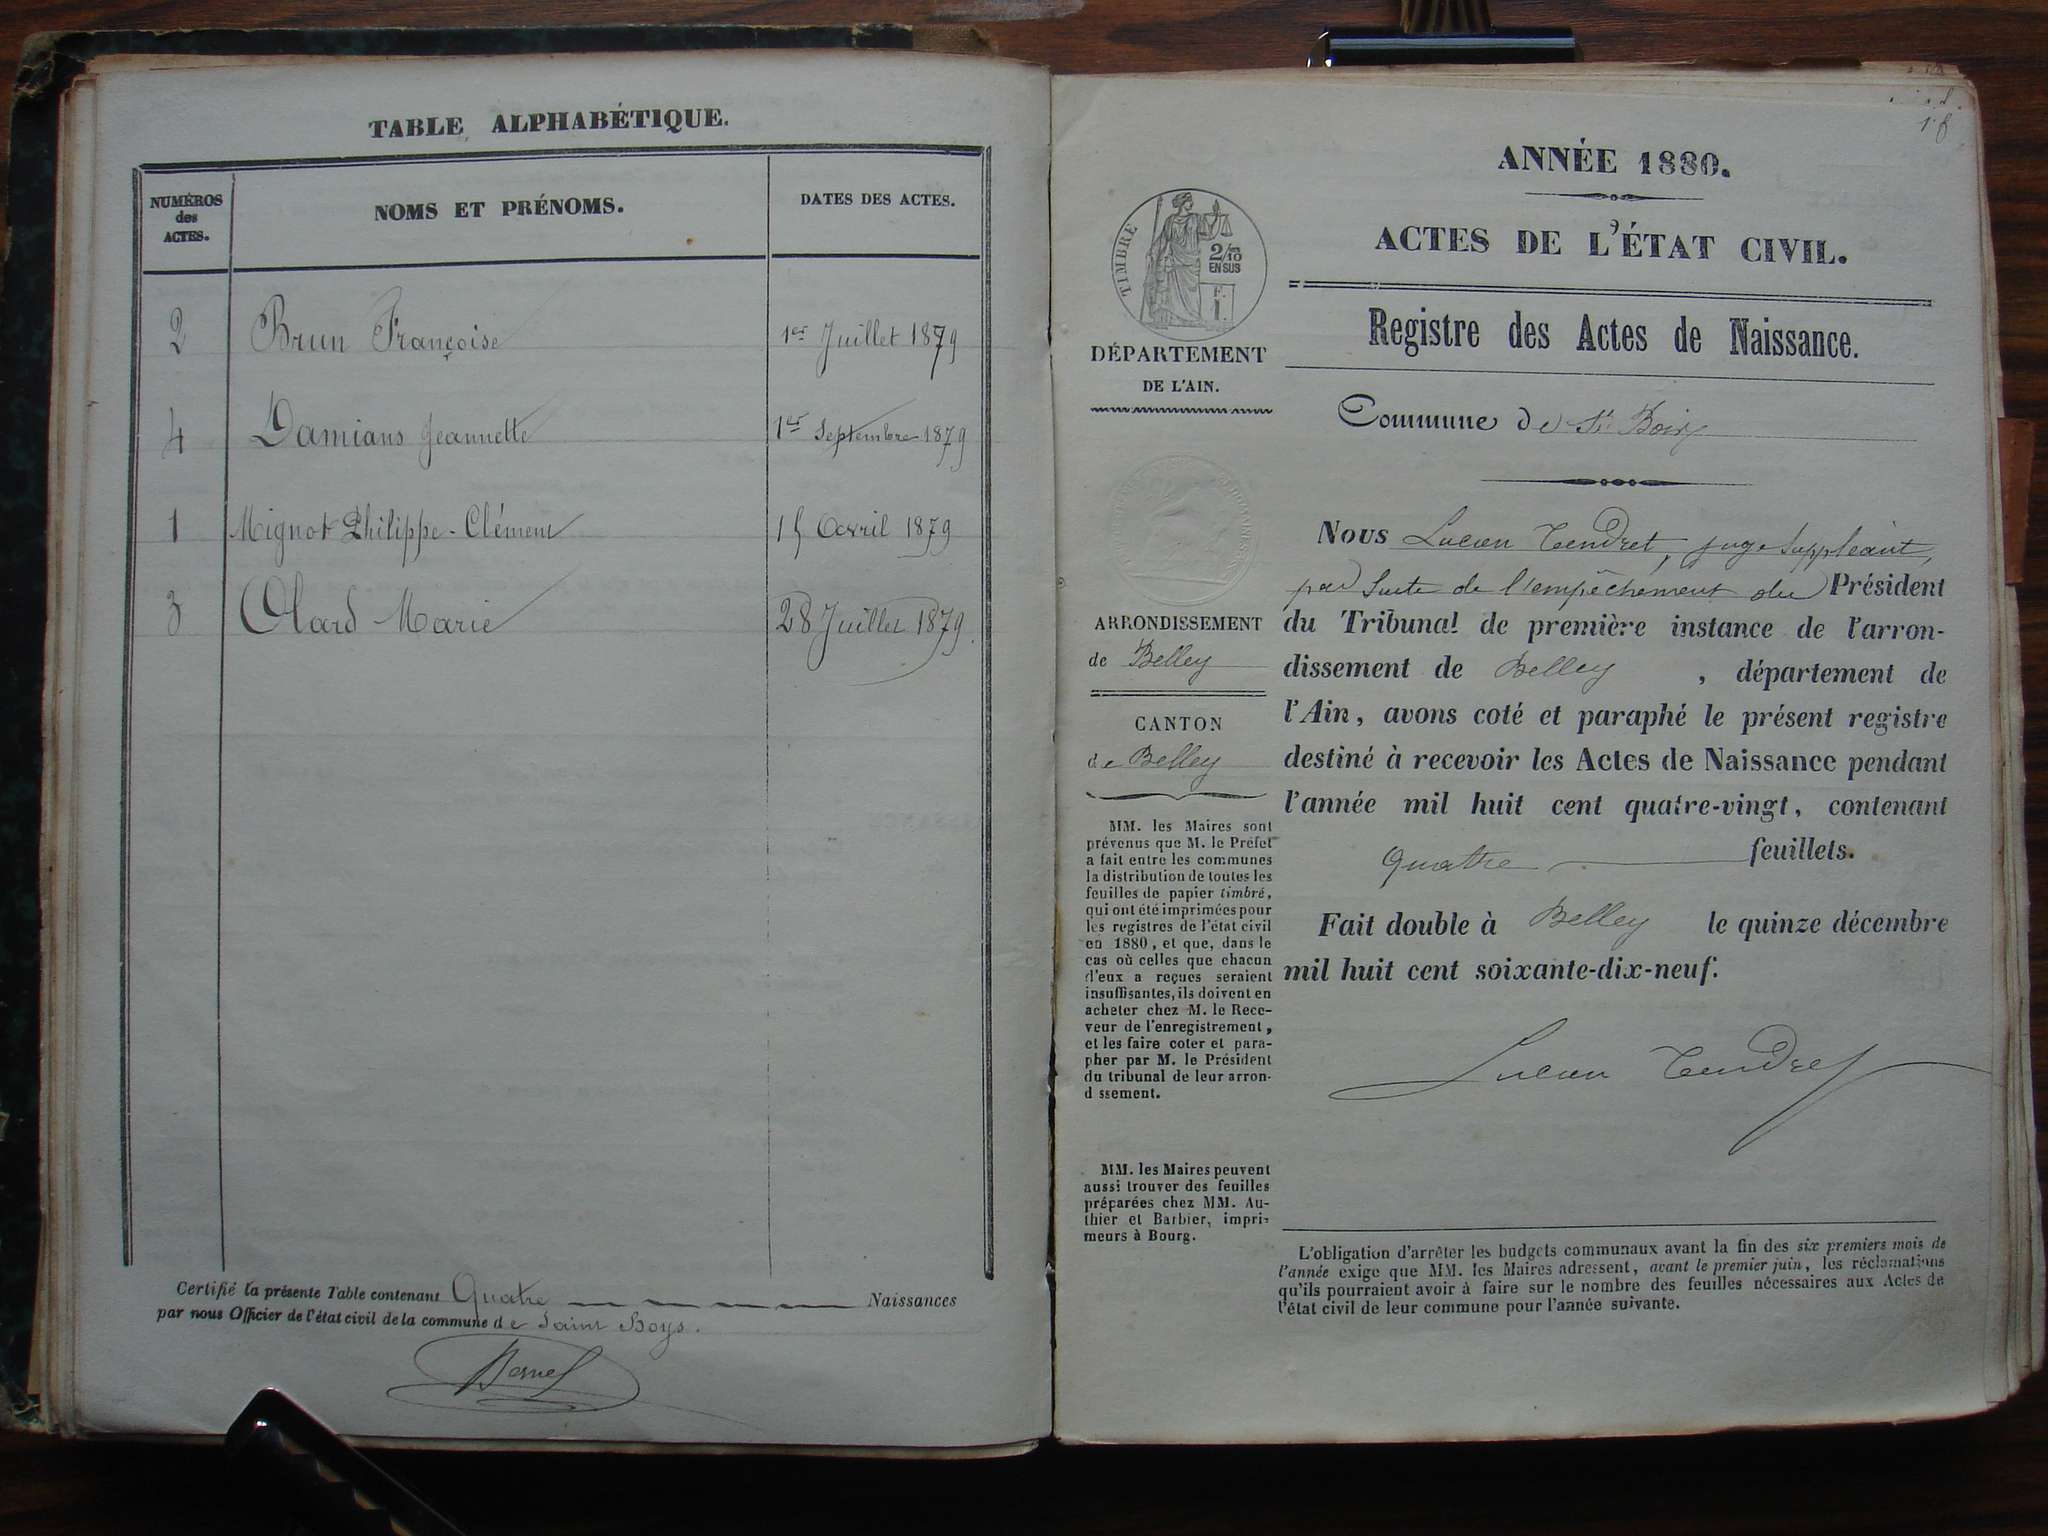 TABLE ALPHABÉTIQUE.
NUMÉROS
des
ACTES.
NOMS ET PRÉNOMS.
DATES DES ACTES.
2 Brun Françoise 1er Juillet 1879
4 Damians Jeannette 1er Septembre 1879
1 Mignot Philippe-Clément 15 Avril 1879
3 Olard Marie 28 Juillet 1879.
Certifié la présente Table contenant Quatre Naissances
par nous Officier de l'état civil de la commune de Saint Boys.
ANNÉE 1880.
ACTES DE L'ÉTAT CIVIL.
TIMBRE
2/10
EN SUS
DÉPARTEMENT
DE L'AIN.
Registre des Actes de Naissance.
Commune de St Boix
ARRONDISSEMENT
de Belley
CANTON
de Belley
MM. les Maires sont
prévenus que M. le Préfet
a fait entre les communes
la distribution de toutes les
feuilles de papier timbré,
qui ont été imprimées pour
les registres de l'état civil
en 1880, et que, dans le
cas où celles que chacun
d'eux a reçues seraient
insuffisantes, ils doivent en
acheter chez M. le Rece-
veur de l'enregistrement,
et les faire coter et para-
pher par M. le Président
du tribunal de leur arron-
d ssement.
MM. les Maires peuvent
aussi trouver des feuilles
préparées chez MM. Au-
thier et Barbier, impri-
meurs à Bourg.
Nous Lucien Tendret, juge suppléant,
par suite de l'empêchement du Président
du Tribunal de première instance de l'arron-
dissement de Belley, département de
l'Ain, avons coté et paraphé le présent registre
destiné à recevoir les Actes de Naissance pendant
l'année mil huit cent quatre-vingt, contenant
quatre feuillets.
Fait double à Belley le quinze décembre
mil huit cent soixante-dix-neuf.
Lucien Tendret
L'obligation d'arrêter les budgets communaux avant la fin des six premiers mois de
l'année exige que MM. les Maires adressent, avant le premier juin, les réclamations
qu'ils pourraient avoir à faire sur le nombre des feuilles nécessaires aux Actes de
l'état civil de leur commune pour l'année suivante.